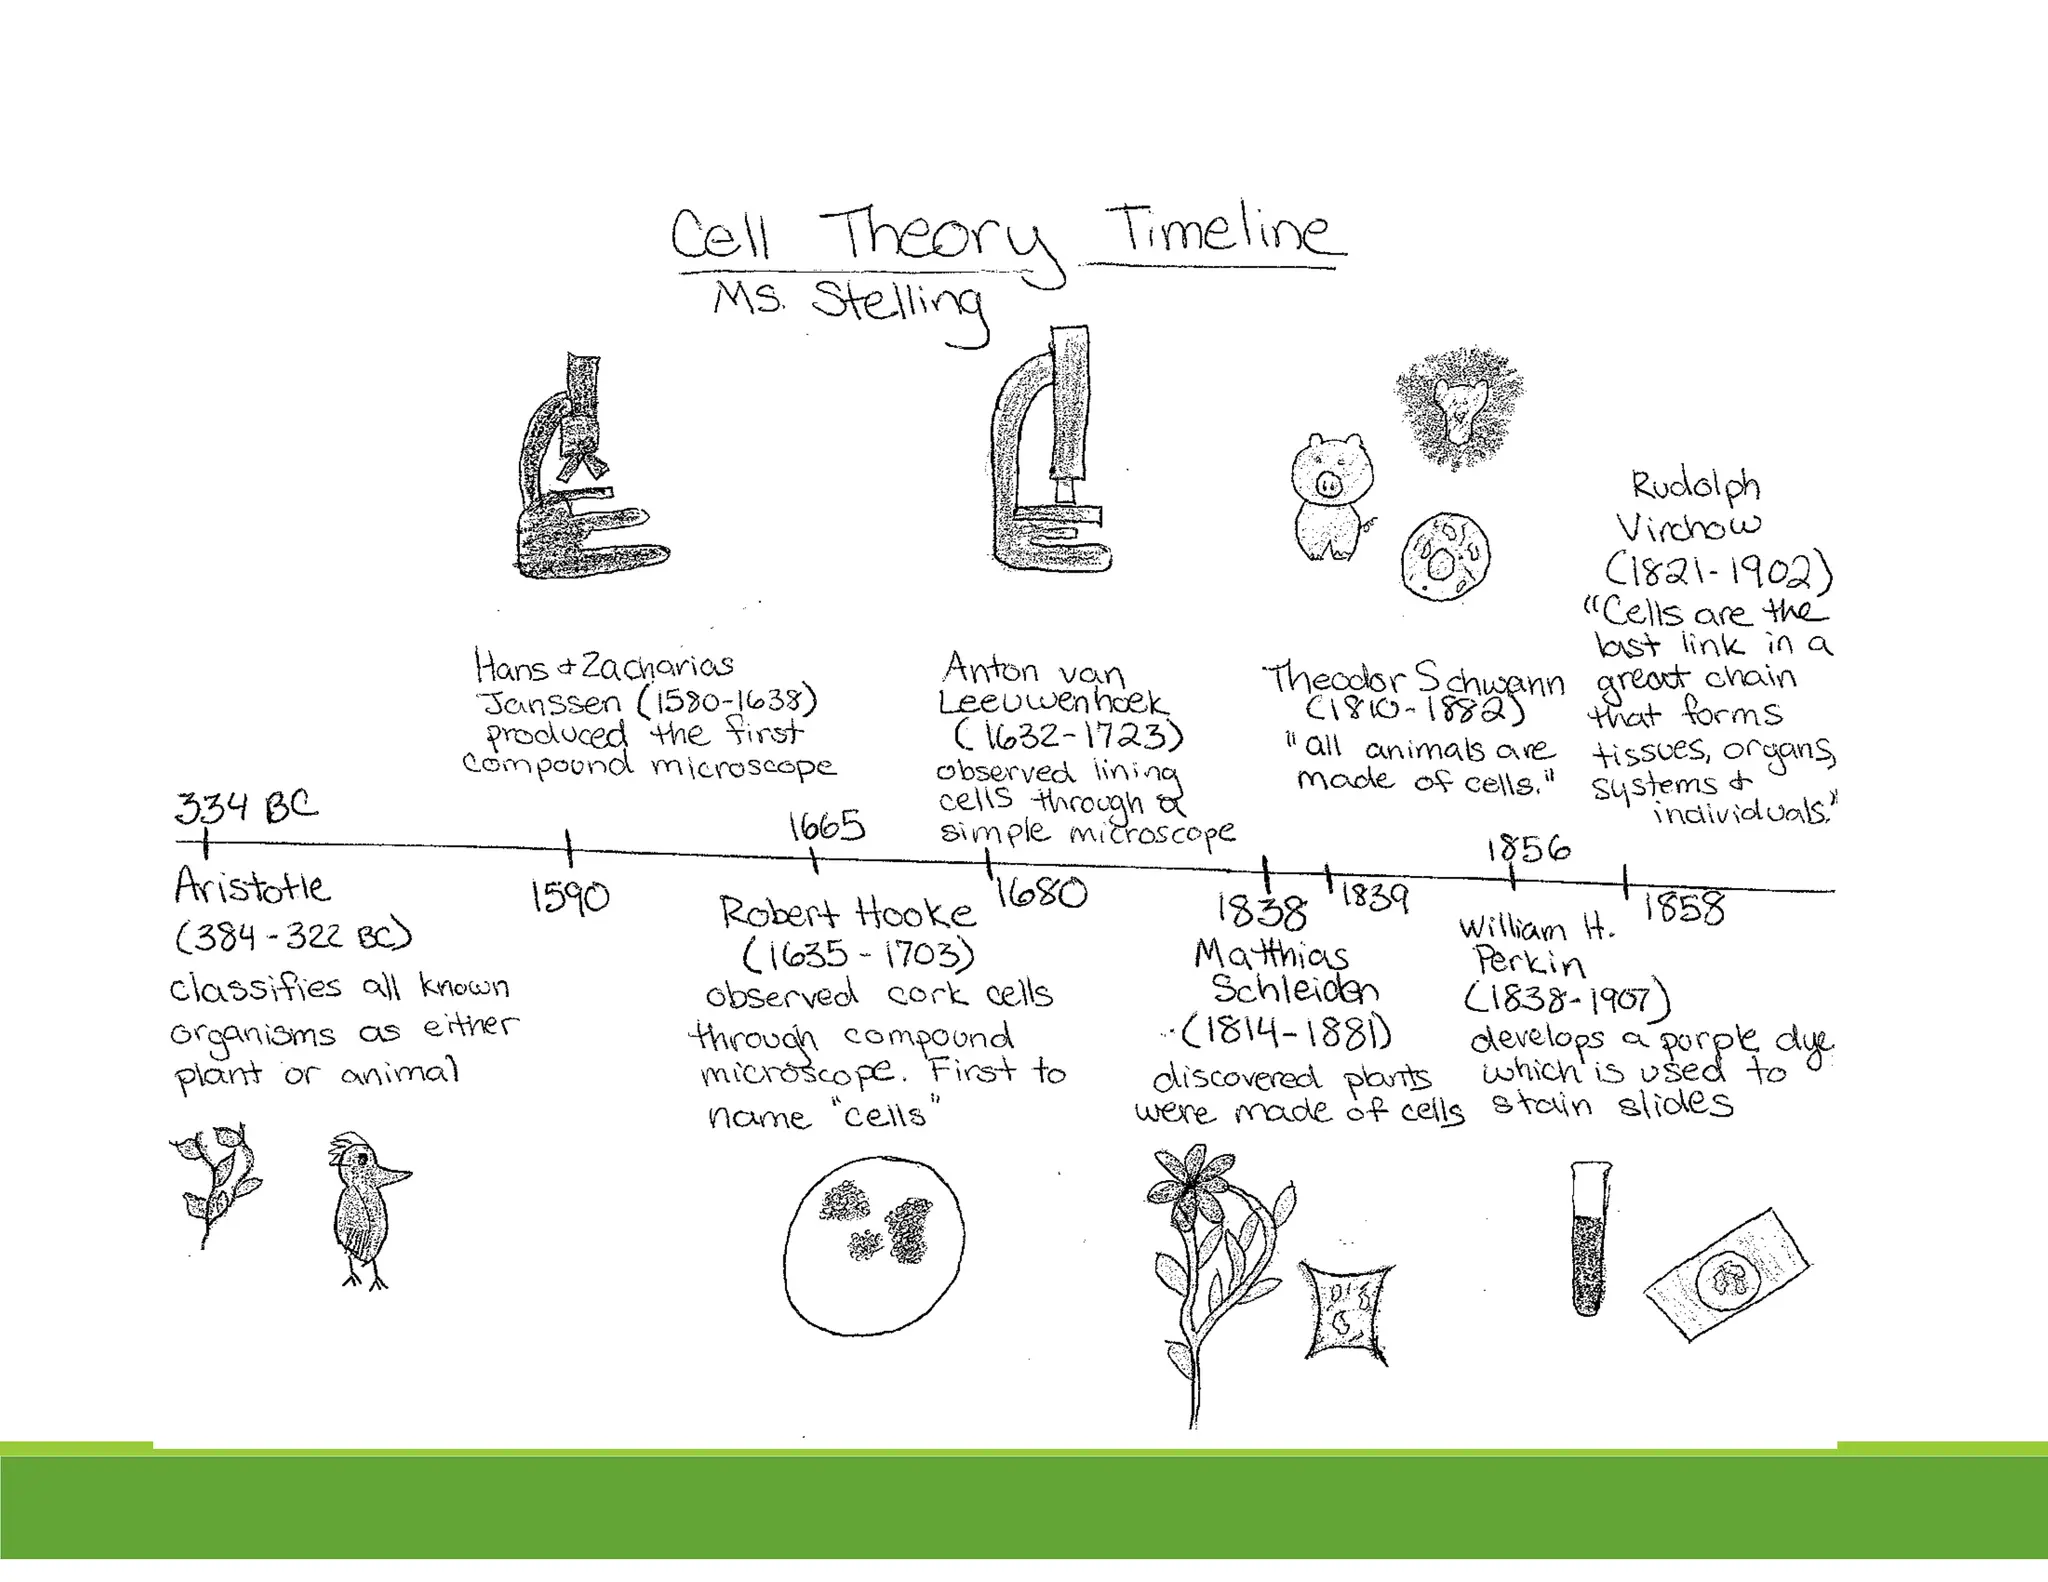 Cell Theory Timeline
Ms. Stelling
Hans & Zacharias
Janssen (1580-1638)
produced the first
compound microscope
Anton van
Leeuwenhoek
(1632-1723)
observed lining
cells through a
simple microscope
Theodor Schwann
(1810-1882)
"all animals are
made of cells."
Rudolph
Virchow
(1821-1902)
"Cells are the
last link in a
great chain
that forms
tissues, organs,
systems &
individuals."
334 BC
Aristotle
(384-322 BC)
classifies all known
organisms as either
plant or animal
1590
1665
Robert Hooke
(1635-1703)
observed cork cells
through compound
microscope. First to
name "cells"
1680
1838
Matthias
Schleiden
(1814-1881)
discovered plants
were made of cells
1839
1856
William H.
Perkin
(1838-1907)
develops a purple dye
which is used to
stain slides
1858